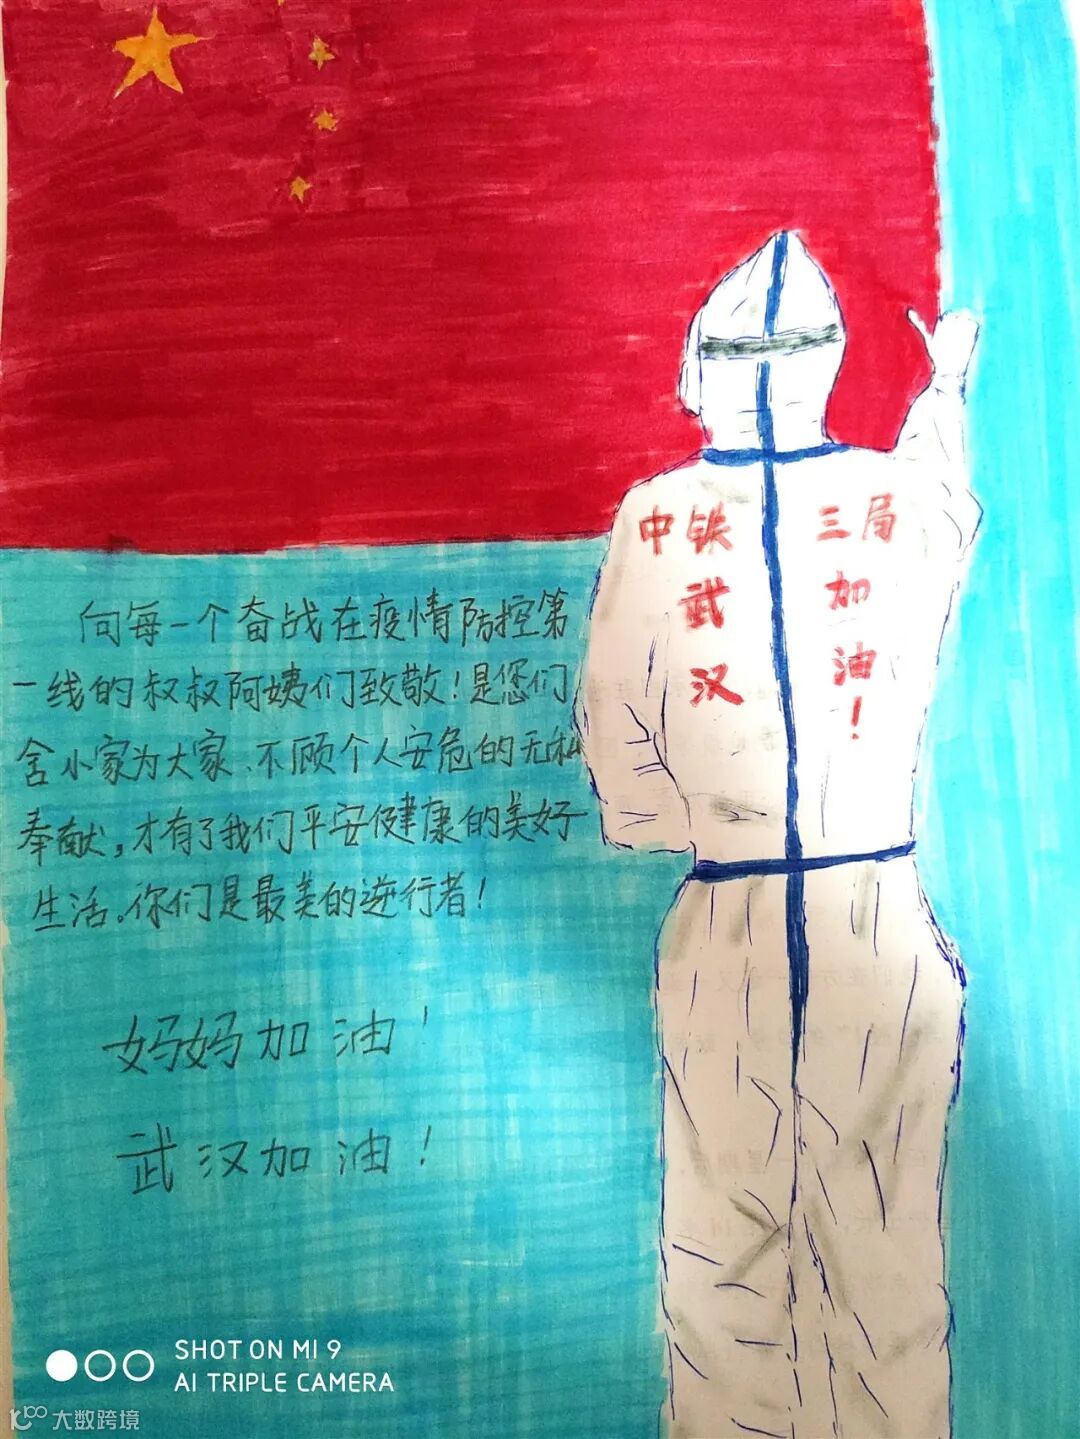 中铁 三局
武汉
加油！
向每一个奋战在疫情防控第
一线的叔叔阿姨们致敬！是您们
舍小家为大家、不顾个人安危的无私
奉献，才有了我们平安健康的美好
生活。你们是最美的逆行者！
妈妈加油！
武汉加油！
SHOT ON MI 9
AI TRIPLE CAMERA
大数跨境